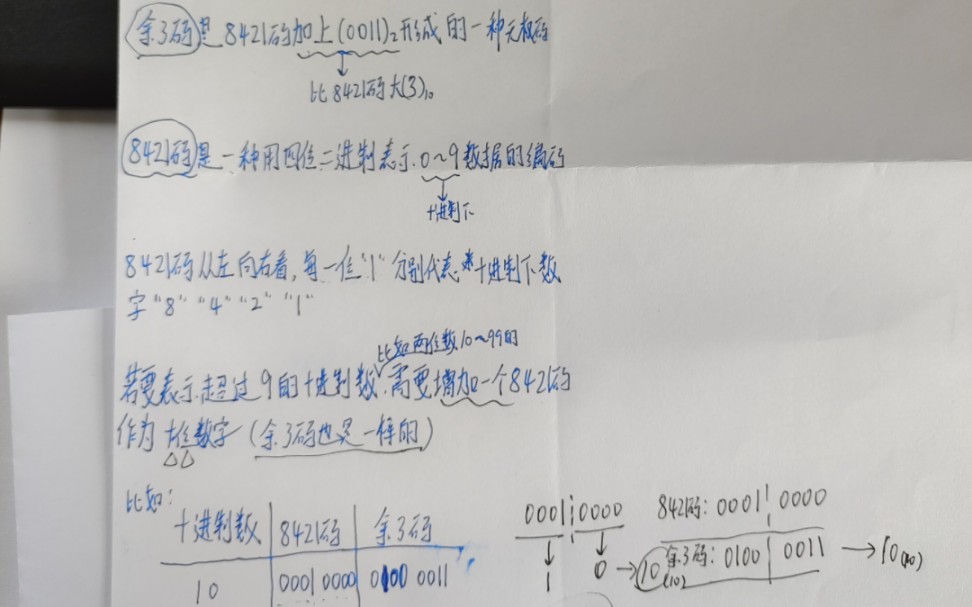 余3码是8421码加上(0011)₂形成的一种无权码
比8421码大(3)₁₀
8421码是一种用四位二进制表示0~9数据的编码
十进制下
8421码从左向右看,每一位"1"分别代表十进制下数
字"8" "4" "2" "1"
比如两位数10~99的
若要表示超过9的十进制数,需要增加一个8421码
作为十位数字(余3码也是一样的)
比如:
十进制数 8421码 余3码
10 0001 0000 0100 0011
0001 0000
1 0 → 10(10)
8421码: 0001 0000
余3码: 0100 0011 → 10(10)